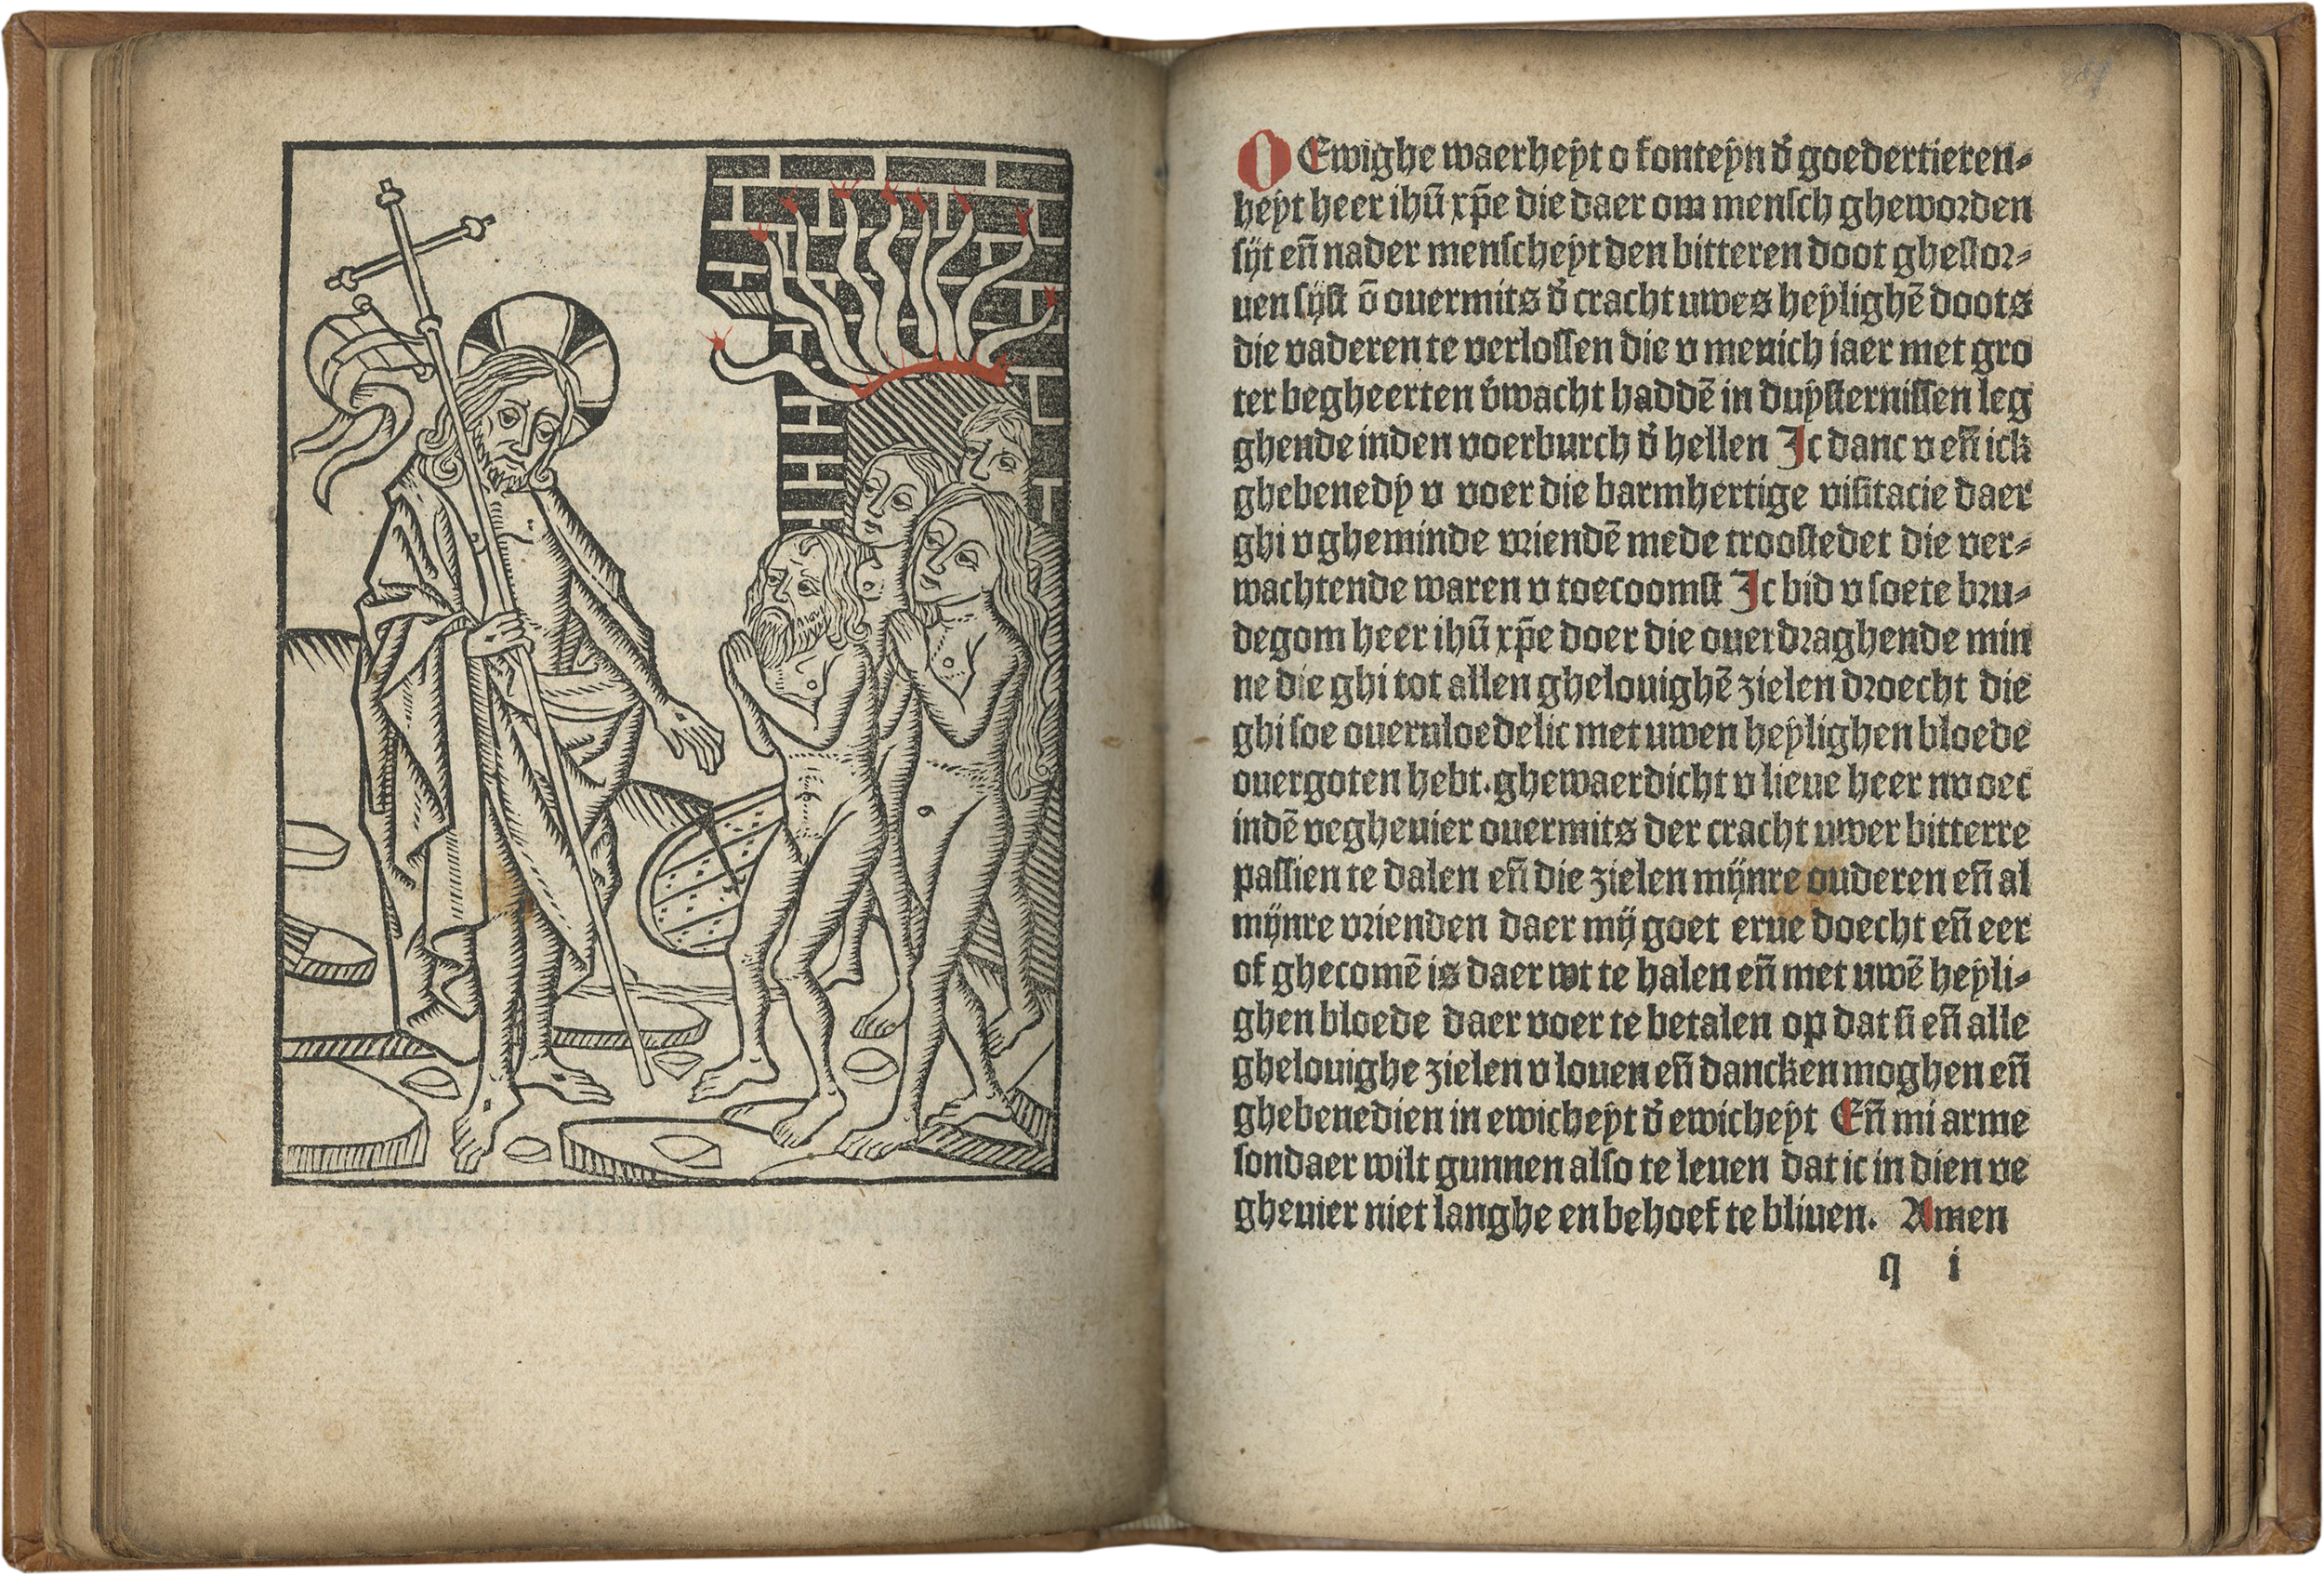 O Ewighe waerheẏt o fonteẏn d̾ goedertieren⸗
heẏt heer ihū xp̄e die daer om menſch ghewoꝛden
ſijt en̄ nader menſcheẏt den bitteren doot gheſtoꝛ⸗
uen ſijſt ō ouermits d̾ cracht uwes heẏlighē doots
die vaderen te verloſſen die v menich iaer met gro
ter begheerten v̾wacht haddē in duẏſterniſſen leg
ghende inden voerburch d̾ hellen Ic danc v en̄ ick
ghebenedẏ v voer die barmhertige viſitacie daer
ghi v gheminde vꝛiendē mede trooſtedet die ver⸗
wachtende waren v toecoomſt Ic bid v ſoete bꝛu⸗
degom heer ihū xp̄e doer die ouerdꝛaghende min
ne die ghi tot allen ghelouighē zielen dꝛoecht die
ghi ſoe oueruloedelic met uwen heẏlighen bloede
ouergoten hebt. ghewaerdicht v lieue heer nv oec
indē vegheuier ouermits der cracht uwer bitterre
paſſien te dalen en̄ die zielen mijnre ouderen en̄ al
mijnre vꝛienden daer mij goet erue doecht en̄ eer
of ghecomē is daer wt te halen en̄ met uwē heẏli⸗
ghen bloede daer voer te betalen op dat ſi en̄ alle
ghelouighe zielen v louen en̄ dancken moghen en̄
ghebenedien in ewicheẏt d̾ ewicheẏt En̄ mi arme
ſondaer wilt gunnen alſo te leuen dat ic in dien ve
gheuier niet langhe en behoef te bliuen. Amen
q i